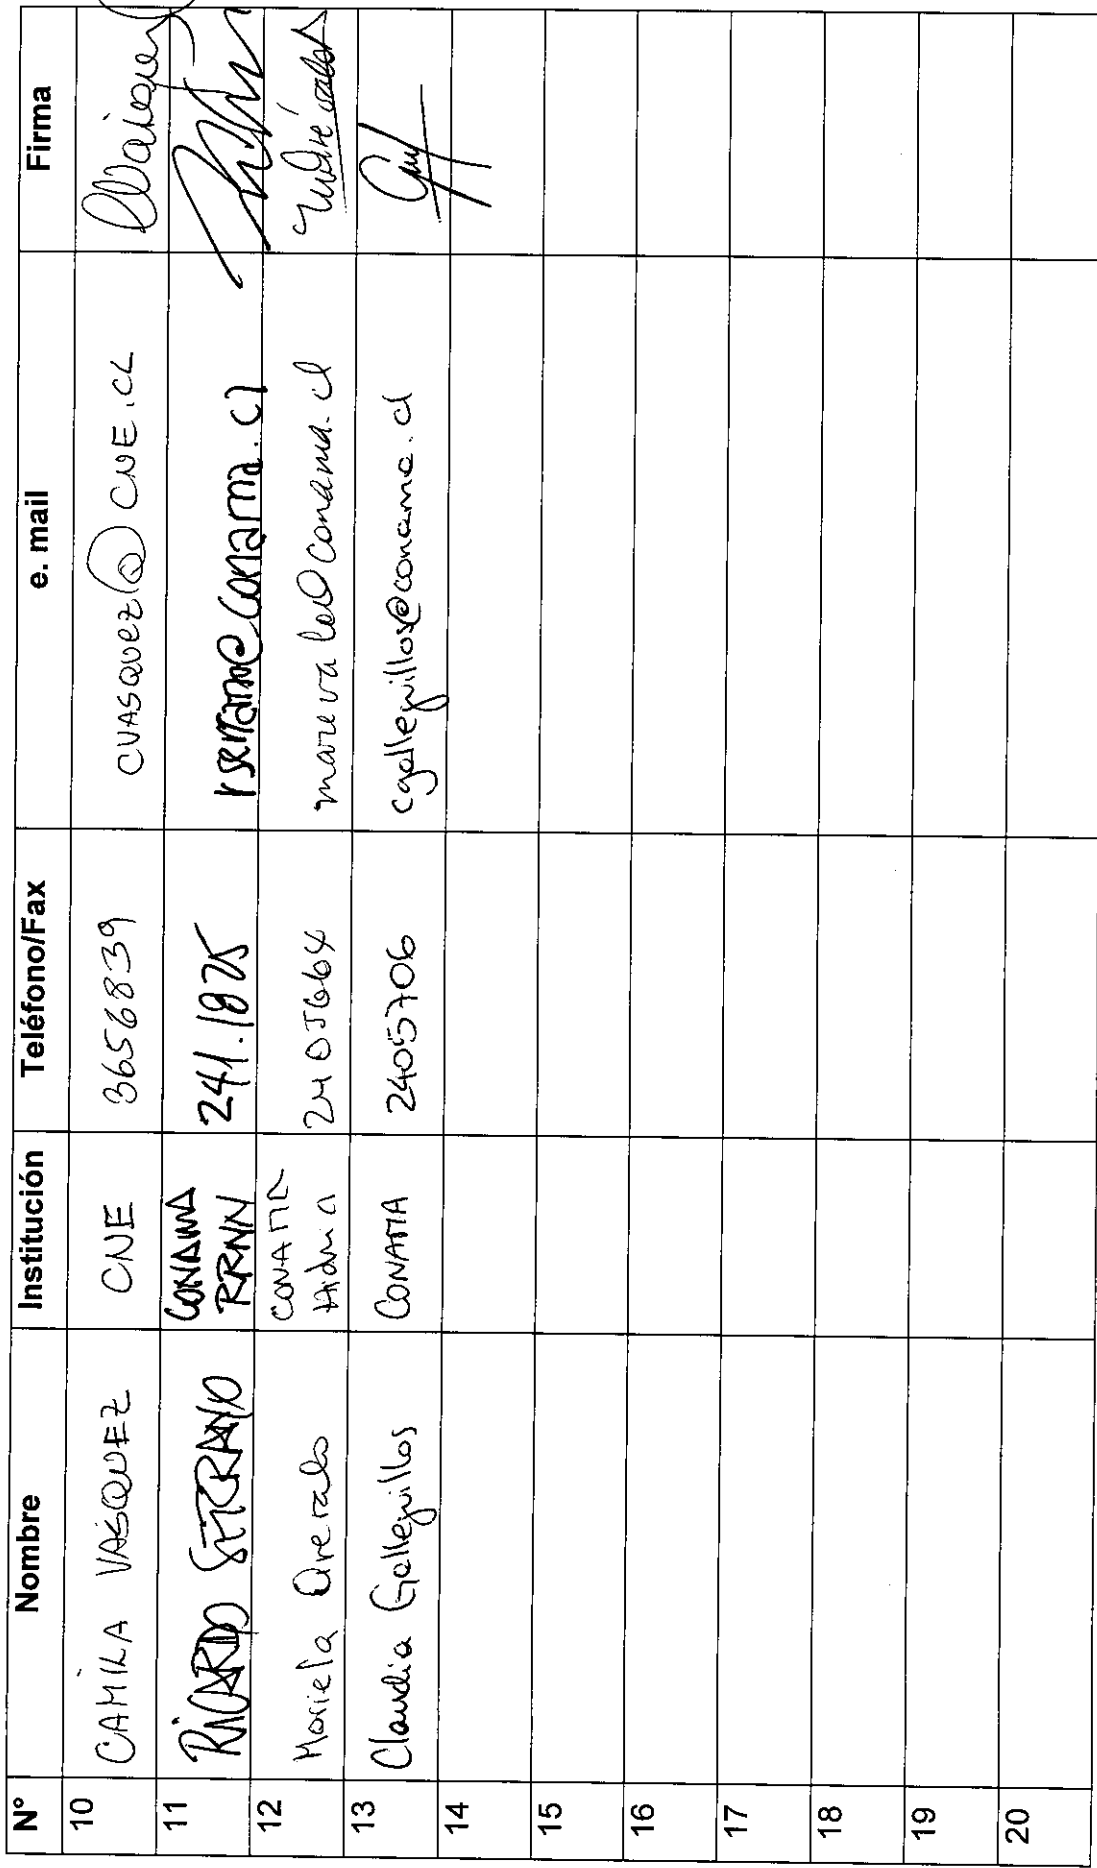 N° Nombre Institución Teléfono/Fax e. mail Firma
10 CAMILA VÁSQUEZ CNE 3656839 CVASQUEZ@CNE.CL
11 RICARDO SERRANO CONAMA RRNN 241.1825 rserrano@conama.cl
12 Mariela Arevalo CONAMA 2405664 marevalo@conama.cl
13 Claudia Galleguillos CONAMA 2405706 cgalleguillos@conama.cl
14
15
16
17
18
19
20